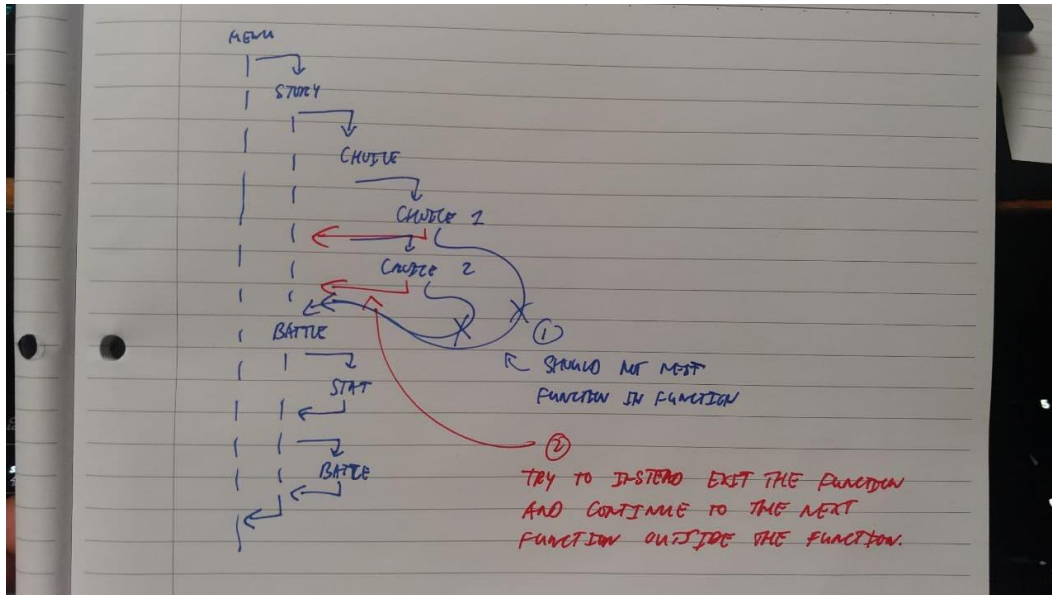 MENU
STORY
CHOICE
CHOICE 1
CHOICE 2
BATTLE
STAT
BATTLE
①
SHOULD NOT NEST
FUNCTION IN FUNCTION
②
TRY TO INSTEAD EXIT THE FUNCTION
AND CONTINUE TO THE NEXT
FUNCTION OUTSIDE THE FUNCTION.